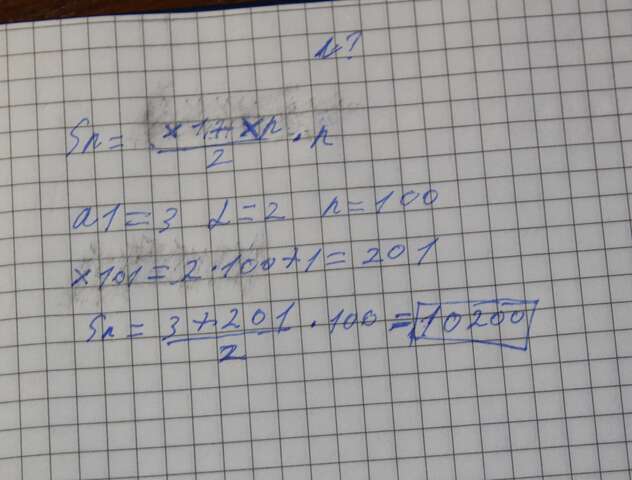 №?
Sn = x1+xn/2 · n
a1 = 3 d = 2 n = 100
x101 = 2·100+1 = 201
Sn = 3+201/2 · 100 = 10200